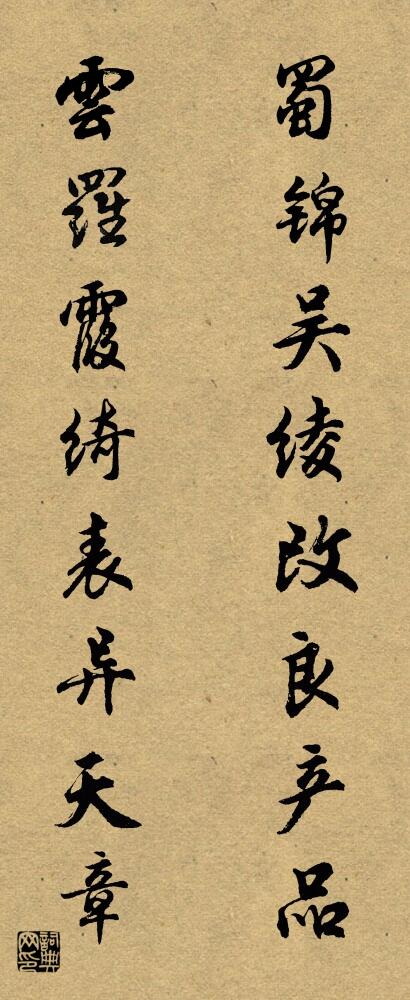 蜀锦吴绫改良产品
雲羅霞绮表异天章
詞典网印